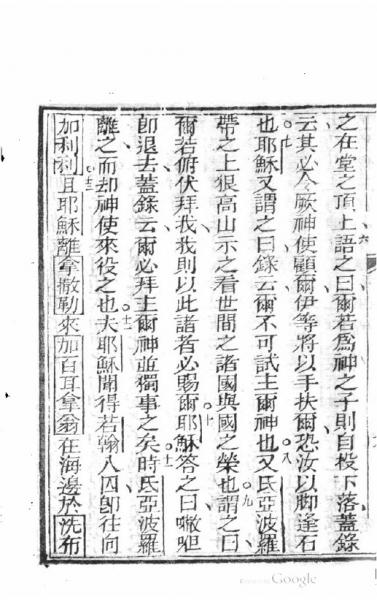 之在堂之頂上語之曰爾若為神之子則自投下落蓋錄
云其必令厥神使顧爾伊等將以手扶爾恐汝以脚逢石
也耶穌又謂之曰錄云爾不可試主爾神也又氏亞波羅
帶之上很高山示之看世間之諸國與國之榮也謂之曰
爾若俯伏拜我我則以此諸者必賜爾耶穌答之曰呾
即退去蓋錄云爾必拜主爾神並獨事之矣時氏亞波羅
離之而却神使來役之也夫耶穌聞得若翰入囚即往向
加利利且耶穌離拿撒勒來加百耳拿翁在海邊於洗布
Google